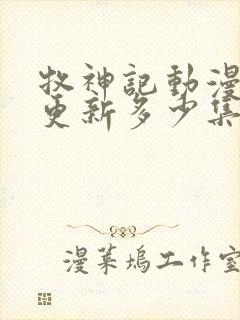 牧神記動漫
更新多少集
漫萊塢工作室